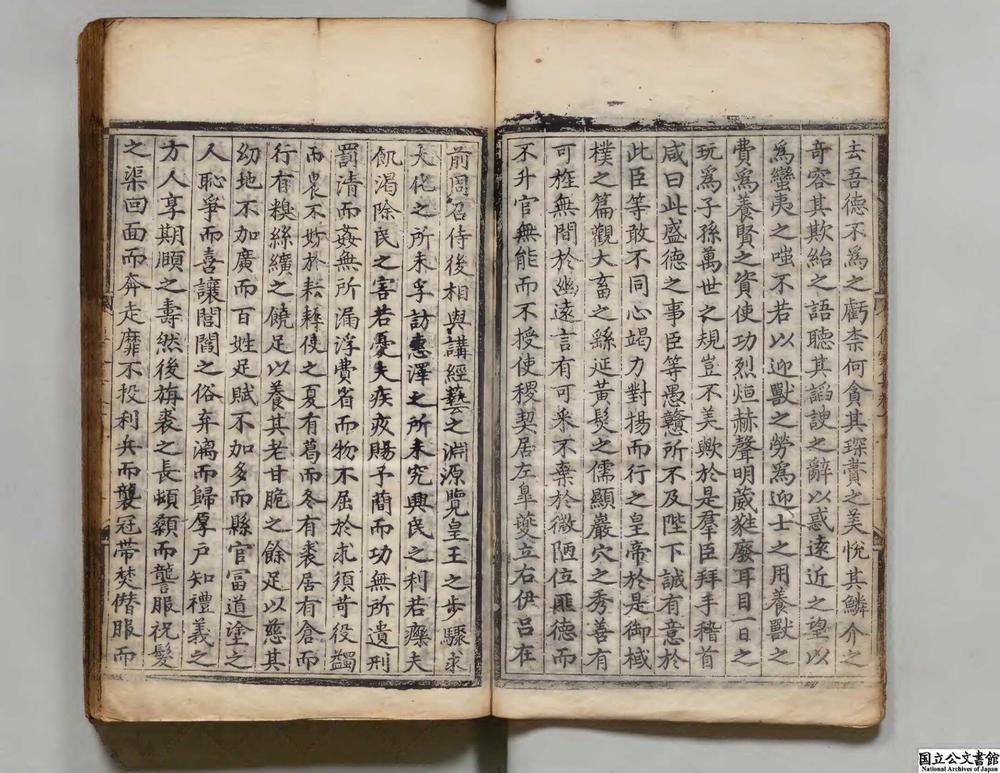 去吾德不爲之虧柰何貪其琛賮之美悅其鱗介之
奇容其欺紿之語聽其謟諛之辭以惑遠近之望以
爲蠻夷之嗤不若以迎獸之勞爲迎士之用養獸之
費爲養賢之資使功烈烜赫聲明葳蕤廢耳目一日之
玩爲子孫萬世之規豈不美歟於是羣臣拜手稽首
咸曰此盛德之事臣等愚戇所不及陛下誠有意於
此臣等敢不同心竭力對揚而行之皇帝於是御棫
樸之篇觀大畜之繇延黃髮之儒顯巖穴之秀善有
可旌無間於幽遠言有可釆不棄於微陋位匪德而
不升官無能而不授使稷契居左皐夔立右伊呂在
前周召侍後相與講經藝之淵源覽皇王之步驟求
大化之所未孚訪惠澤之所未究興民之利若療夫
飢渴除民之害若憂夫疾疢賜予簡而功無所遺刑
罰清而姦無所漏浮費省而物不屈於求須苛役蠲
而農不妨於耘耨使之夏有葛而冬有裘居有倉而
行有糗絲纊之饒足以養其老甘脆之餘足以慈其
幼地不加廣而百姓足賦不加多而縣官富道塗之
人恥爭而喜讓閭閻之俗弃漓而歸厚戶知禮義之
方人享期頤之壽然後旃裘之長頓顙而讋服祝髮
之渠回面而奔走靡不投利兵而襲冠帶焚僭服而
国立公文書館
National Archives of Japan